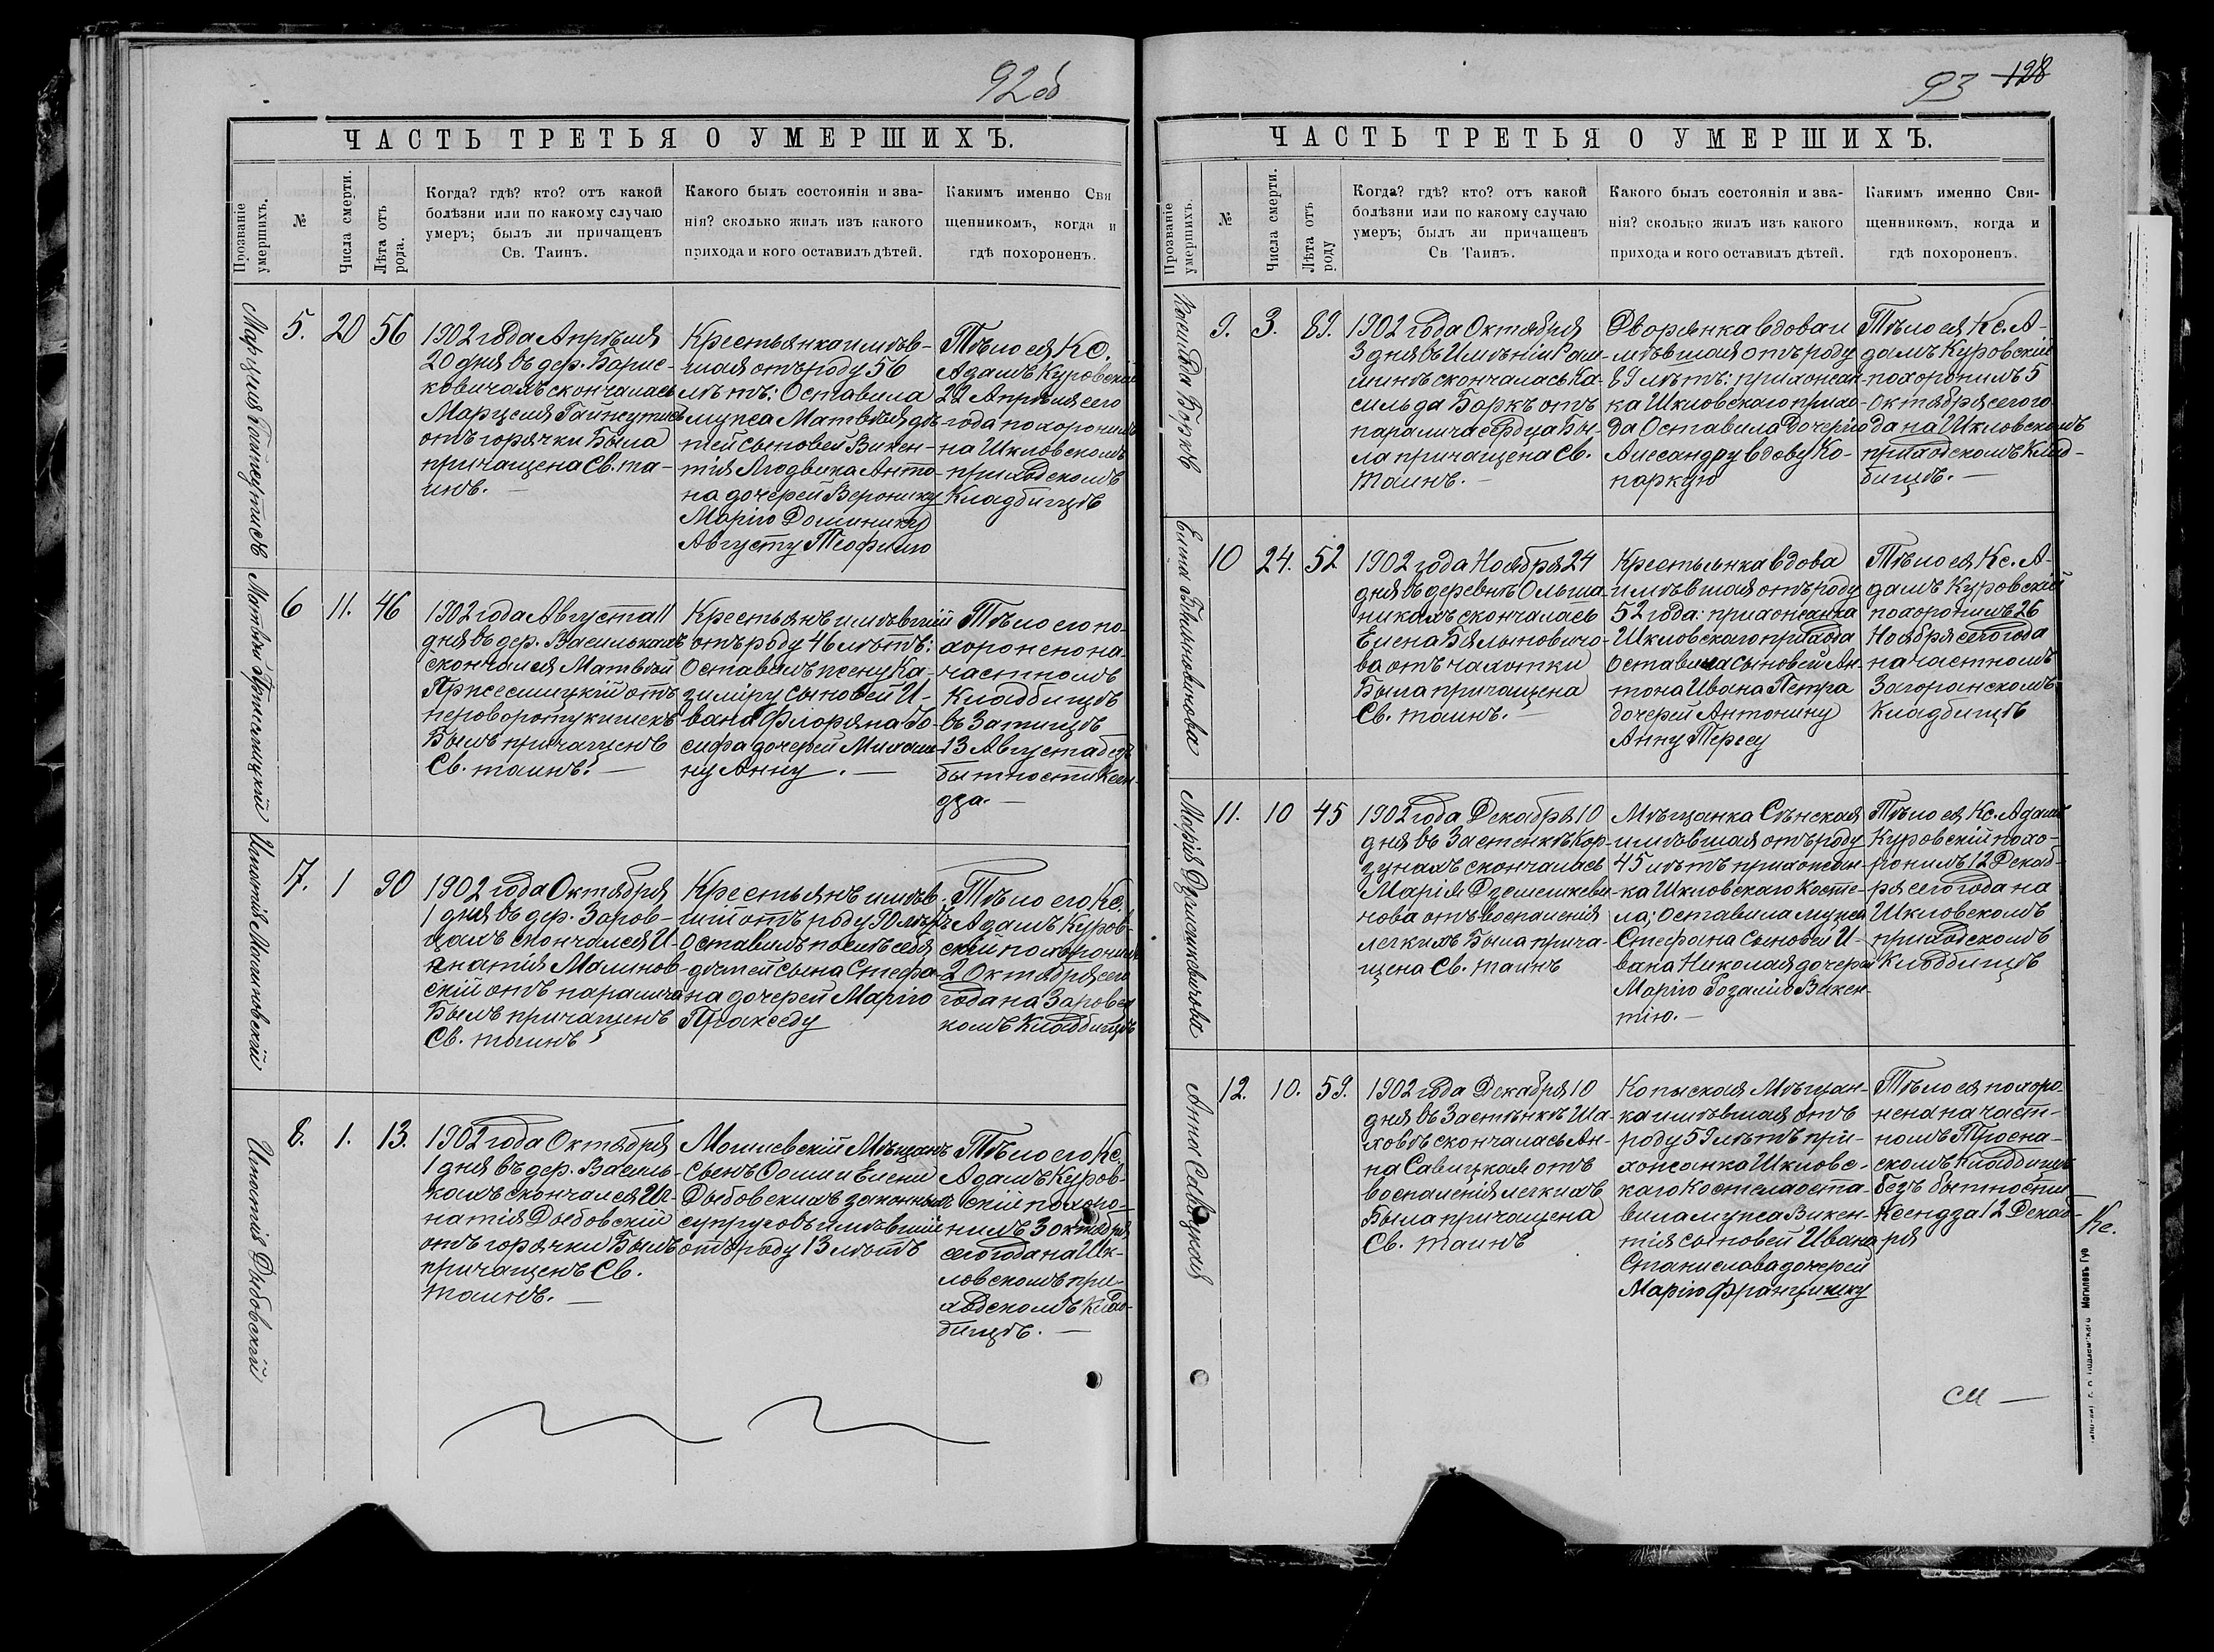 92об
ЧАСТЬ ТРЕТЬЯ О УМЕРШИХЪ.
Прозваніе умершихъ.
№
Числа смерти.
Лѣта отъ рода.
Когда? гдѣ? кто? отъ какой
болѣзни или по какому случаю
умеръ; былъ ли причащенъ
Св. Таинъ.
Какого былъ состоянія и зва-
нія? сколько жилъ изъ какого
прихода и кого оставилъ дѣтей.
Какимъ именно Свя
щенникомъ, когда и
гдѣ похороненъ.
5. 20 56
1902 года Апрѣля
20 дня въ дер. Барис-
ковичахъ скончалась
Марцеля
отъ горячки Была
причащена Св. та-
инъ. —
Крестьянка имѣв-
шая отъ роду 56
лѣтъ: Оставила
мужа Матвѣя дѣ-
тей сыновей Викен-
тія Людвика Анто-
на дочерей Веронику
Марію Доминику
Августу Теофилю
Тѣло ея Кс.
Адамъ Куровскій
22 Апрѣля сего
года похоронилъ
на Шкловскомъ
приходскомъ
Кладбищѣ
Матвѣй
6 11. 46
1902 года Августа 11
дня въ дер. Василькахъ
скончался Матвѣй
отъ
переворату кишекъ
Былъ причащенъ
Св. таинъ. —
Крестьянъ имѣвшій
отъ роду 46 лѣтъ:
Оставилъ жену Ка-
зиміру сыновей И-
вана Флоріяна Іо-
сифа дочерей Михали-
ну Анну. —
Тѣло его по-
хоронено на
частномъ
Кладбищѣ
въ Затищѣ
13 Августа безъ
бытности Ксен-
дза. —
Игнатій Малиновскій
7. 1 90
1902 года Октября
1 дня въ дер. Заров-
цахъ скончался И-
гнатія Малинов-
скій отъ паралича
Былъ причащенъ
Св. таинъ
Крестьянъ имѣв-
шій отъ роду 90 лѣтъ
Оставилъ послѣ себя
дѣтей сына Стефа-
на дочерей Марію
Пракседу
Тѣло его Кс.
Адамъ Куров-
скій похоронилъ
2 Октября сего
года на Заровец
комъ Кладбищѣ
Игнатія Дыбовскій
8. 1. 13.
1902 года Октября
1 дня въ дер. Василь-
кахъ скончался Иг-
натія Дыбовскій
отъ горячки Былъ
причащенъ Св.
Таинъ. —
Могилевскій Мѣщанъ
Сынъ Осипа и Елены
Дыбовскихъ законныхъ
супруговъ имѣвшій
отъ роду 13 лѣтъ
Тѣло его Кс.
Адамъ Куров-
скій похоро-
нилъ 3 октября
сего года на Шк-
ловскомъ при-
ходскомъ Клад-
бищѣ. —
93 128
ЧАСТЬ ТРЕТЬЯ О УМЕРШИХЪ.
Прозваніе умершихъ.
№
Числа смерти.
Лѣта отъ роду
Когда? гдѣ? кто? отъ какой
болѣзни или по какому случаю
умеръ; былъ ли причащенъ
Св Таинъ.
Какого былъ состоянія и зва-
нія? сколько жилъ изъ какого
прихода и кого оставилъ дѣтей.
Какимъ именно Свя-
щенникомъ, когда и
гдѣ похороненъ.
9. 3. 89.
1902 года Октября
3 дня въ Имѣніи
скончалась Ка-
сильда Боркъ отъ
паралича сердца Бы-
ла причащена Св.
Таинъ. —
Дворянка вдова и
мѣвшая отъ роду
89 лѣтъ: прихожан-
ка Шкловскаго прихо-
да Оставила Дочерию
Алесандру вдову Ко-
паркую
Тѣло ея Кс. А-
дамъ Куровскій
похоронилъ 5
Октября сего го
да на Шкловскомъ
приходскомъ Клад-
бищѣ. —
10 24. 52
1902 года Ноября 24
дня въ деревнѣ Ольша-
никахъ скончалась
Елена Бялыновичо-
ва отъ чахотки
Была причащена
Св. таинъ. —
Крестьянка вдова
имѣвшая отъ роду
52 года: прихожанка
Шкловскаго прихода
Оставила сыновей Ан-
тона Ивана Петра
дочерей Антонину
Анну Тересу
Тѣло ея Кс. А-
дамъ Куровскій
похоронилъ 26
Ноября сего года
на частномъ
Загоранскомъ
Кладбищѣ
11. 10 45
1902 года Декабря 10
дня въ Застенкѣ Кор-
зунахъ скончалась
Марія
отъ воспаленія
легкихъ Была прича-
щена Св. таинъ
Мѣщанка Сѣнская
имѣвшая отъ роду
45 лѣтъ прихожан-
ка Шкловскаго Косте-
ла; Оставила мужа
Стефана Сыновей И-
вана Николая дочерей
Марію Розалію Викен-
тію. —
Тѣло ея Кс. Адамъ
Куровскій похо-
ронилъ 12 Декаб-
ря сего года на
Шкловскомъ
приходскомъ
Кладбищѣ
Анна Савицкая
12. 10. 59.
1902 года Декабря 10
дня въ Застѣнкѣ Ша-
ховѣ скончалась Ан-
на Савицкая отъ
воспаленія легкихъ
Была причащена
Св. таинъ
Копыская Мѣщан-
ка имѣвшая отъ
роду 59 лѣтъ при-
хожанка Шкловс-
каго Костела оста-
вила мужа Викен-
тія сыновей Ивана
Станислава дочерей
Марію Францишку
Тѣло ея похоро-
нена на част-
номъ Тросна-
скомъ Кладбищѣ
безъ бытности
Ксендза 12 Декаб-
ря
Кс.